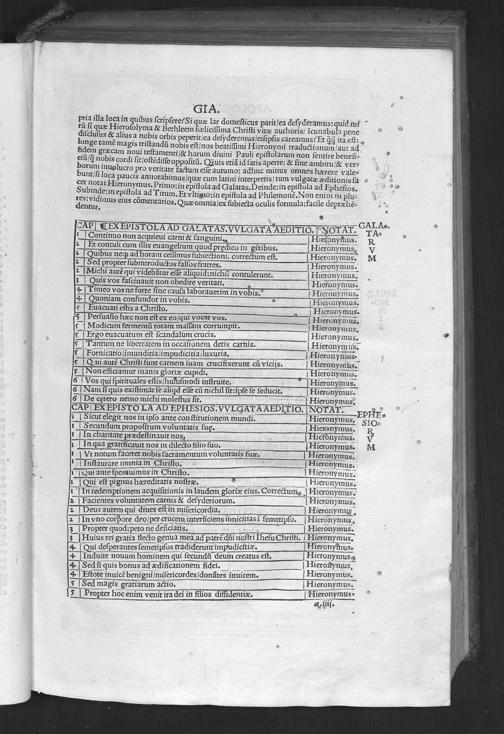 GIA.
pria illa loca in quibus scripsere? Si quæ lar domesticus parit: ea desyderamus: quid mi
rū si quæ Hierosolyma & Bethleem fœlicissima Christi vitæ authoris: icunabula pene
disclusus & alius a nobis orbis peperit: ea desyderemus: eisipsis careamus? Et qq̄ ita est:
longe tamē magis tristandū nobis est: nos beatissimi Hieronymi traductionum: aut ad
fidem græcam noui testamenti: & harum diuini Pauli epistolarum non sentire benefi-
Subinde: in epistola ad Titum. Et vltimo: in epistola ad Philemonē. Non enim in plu-
res: vidimus eius cōmentarios. Quæ omnia: ex subiecta oculis formula: facile depræhe-
dentur.
CAP EX EPISTOLA AD GALATAS. VVLGATA AEDITIO. NOTAT. GALA-
TA-
R
V
M
1 Continuo non acquieui carni & sanguini. Hieronymus.
2 Et contuli cum illis euangelium quod prędico in gētibus. Hieronymus.
2 Quibus neq; ad horam cessimus subiectioni, correctum est. Hieronymus.
2 Sed propter subintroductos falsos fratres. Hieronymus.
2 Mihi autē qui videbātur esse aliquid: nichil contulerunt. Hieronymus.
3 Quis vos fascinauit non obedire veritati. Hieronymus.
4 Timeo vos ne forte sine causa laborauerim in vobis. Hieronymus.
4 Quoniam confundor in vobis. Hieronymus.
5 Euacuati estis a Christo. Hieronymus.
5 Persuasio hæc non est ex eo: qui vocat vos. Hieronymus.
5 Modicum fermenti totam massam corrumpit. Hieronymus.
5 Ergo euacuatum est scandalum crucis. Hieronymus.
5 Tantum ne libertatem in occasionem detis carnis. Hieronymus.
5 Fornicatio: imunditia: impudicitia: luxuria. Hieronymus.
5 Qui autē Christi sunt carnem suam crucifixerunt cū vicijs. Hieronymus.
5 Non efficiamur inanis gloriæ cupidi. Hieronymus.
6 Vos qui spirituales estis: huiusmodi instruite. Hieronymus.
6 Nam si quis existimat se aliqd esse cū nichil sit: ipse se seducit. Hieronymus.
6 De cętero nemo michi molestus sit. Hieronymus.
CAP EX EPISTOLA AD EPHESIOS. VVLGATA AEDITIO. NOTAT. EPHE-
SIO-
R
V
M
1 Sicut elegit nos in ipso ante constitutionem mundi. Hieronymus.
1 Secundum propositum voluntatis suę. Hieronymus.
1 In charitate prædestinauit nos. Hieronymus.
1 In qua gratificauit nos in dilecto filio suo. Hieronymus.
1 Vt notum faceret nobis sacramentum voluntatis suæ. Hieronymus.
1 Instaurare omnia in Christo. Hieronymus.
1 Qui ante sperauimus in Christo. Hieronymus.
1 Qui est pignus hæreditatis nostræ. Hieronymus.
1 In redemptionem acquisitionis in laudem gloriæ eius. Correctum. Hieronymus.
2 Facientes voluntatem carnis & desyderiorum. Hieronymus.
2 Deus autem qui diues est in misericordia. Hieronymus.
2 In vno corpore deo: per crucem interficiens iimicitias ī semetipso. Hieronymus.
3 Propter quod: peto ne deficiatis. Hieronymus.
3 Huius rei gratia flecto genua mea ad patrē dn̄i nostri Ihesu Christi. Hieronymus.
4 Qui desperantes semetipsos tradiderunt impudicitiæ. Hieronymus.
4 Induite nouum hominem qui secundū deum creatus est. Hieronymus.
4 Sed si quis bonus ad ædificationem fidei. Hieronymus.
4 Estote inuicē benigni: misericordes: donātes inuicem. Hieronymus.
5 Sed magis gratiarum actio. Hieronymus.
5 Propter hoc enim venit ira dei in filios diffidentiæ. Hieronymus.
a, iiij.